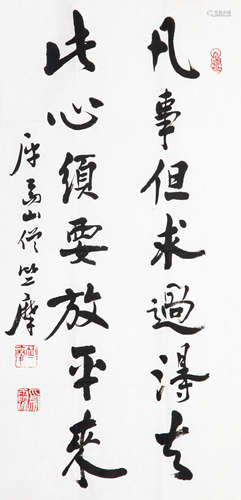 凡事但求過得去
此心須要放平來
屏山僧竺摩